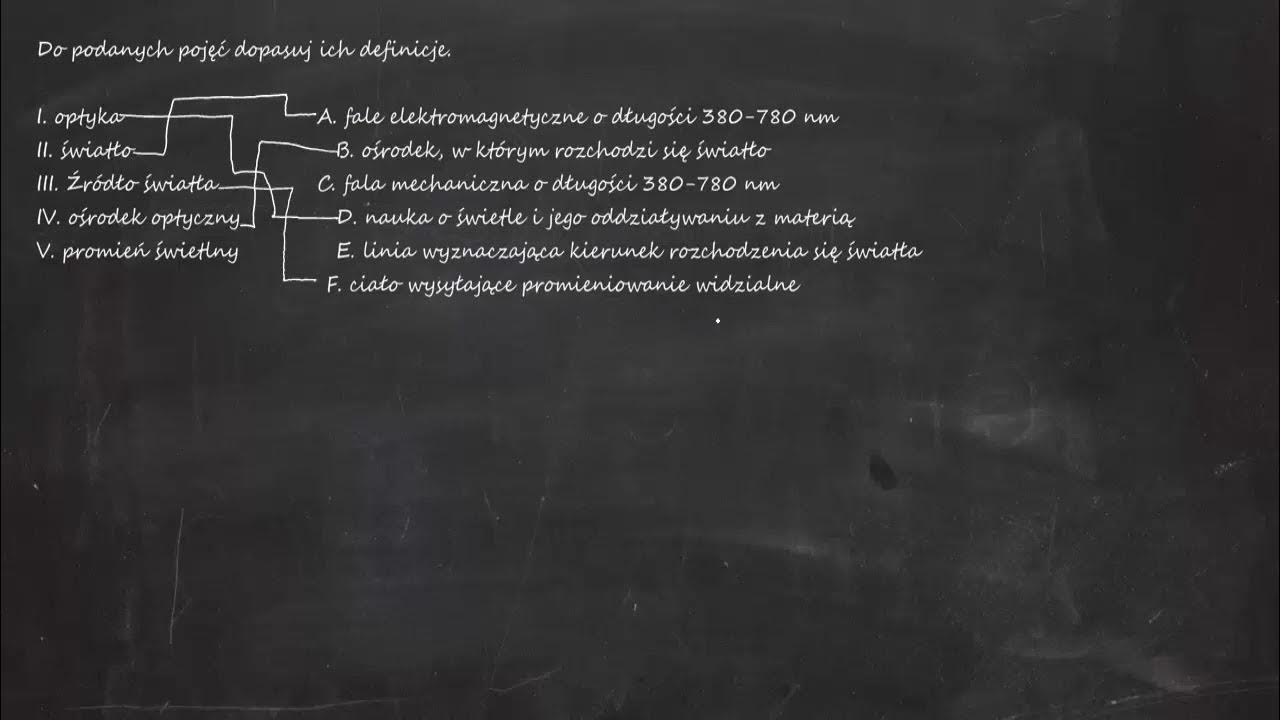 Do podanych pojęć dopasuj ich definicje.
I. optyka A. fale elektromagnetyczne o długości 380-780 nm
II. światło B. ośrodek, w którym rozchodzi się światło
III. Źródło światła C. fala mechaniczna o długości 380-780 nm
IV. ośrodek optyczny D. nauka o świetle i jego oddziaływaniu z materią
V. promień świetlny E. linia wyznaczająca kierunek rozchodzenia się światła
F. ciało wysyłające promieniowanie widzialne